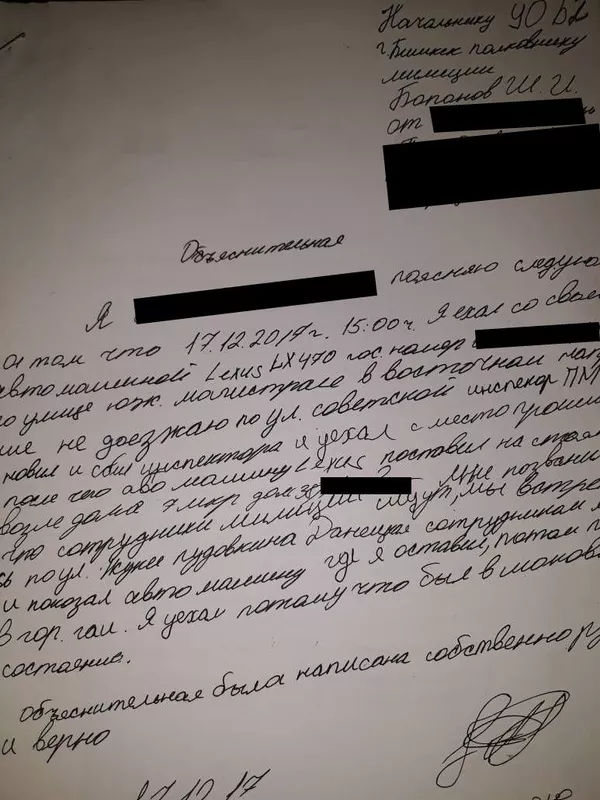 Начальнику УОБДД
г. Бишкек полковнику
милиции
Бапанов Ш. И.
от
Объяснительная
Я поясняю следую
о том что 17.12.2017г. 15:00ч. Я ехал со свое
автомашиной Lexus LX470 гос номер
по улице юж. магистрале в восточном нап
не доезжаю по ул. советской инспекор ПМ
новил и сбил инспектора я уехал с место проис
после чего авто машину Lexus поставил на стоя
возле дома 7 мкр дом 30 Мне позвани
что сотрудники милиции ищут, мы встре
сь по ул. пудовкина Данецкая сотрудникам
и показал авто машину где я оставил, потом п
в гор. гаи. Я уехал потому что был в моков
состоянию.
объеснительная была написана собственно ру
и верно
17.12.17